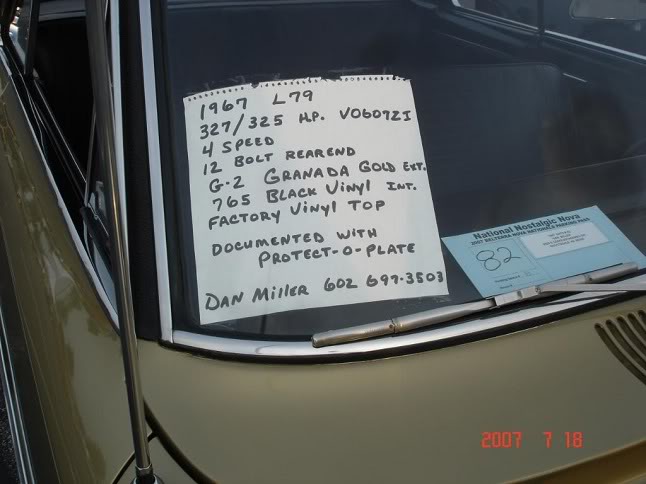 1967 L79
327/325 HP. V0607ZI
4 SPEED
12 BOLT REAREND
G-2 GRANADA GOLD EXT.
765 BLACK VINYL INT.
FACTORY VINYL TOP
DOCUMENTED WITH
PROTECT-O-PLATE
DAN MILLER 602 697-3503
National Nostalgic Nova
2007 BELTERRA NOVA NATIONALS PARKING PASS
82
2007 7 18